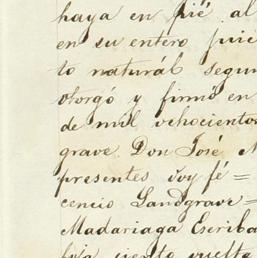 haya en pié al
en su entéro juic
to naturál segun
otorgó y firmó en
de mil vchocientos
grave Don José
presentes doy fé =
cencio Landgrave =
Madariaga Escriba
foja ciento vuelta